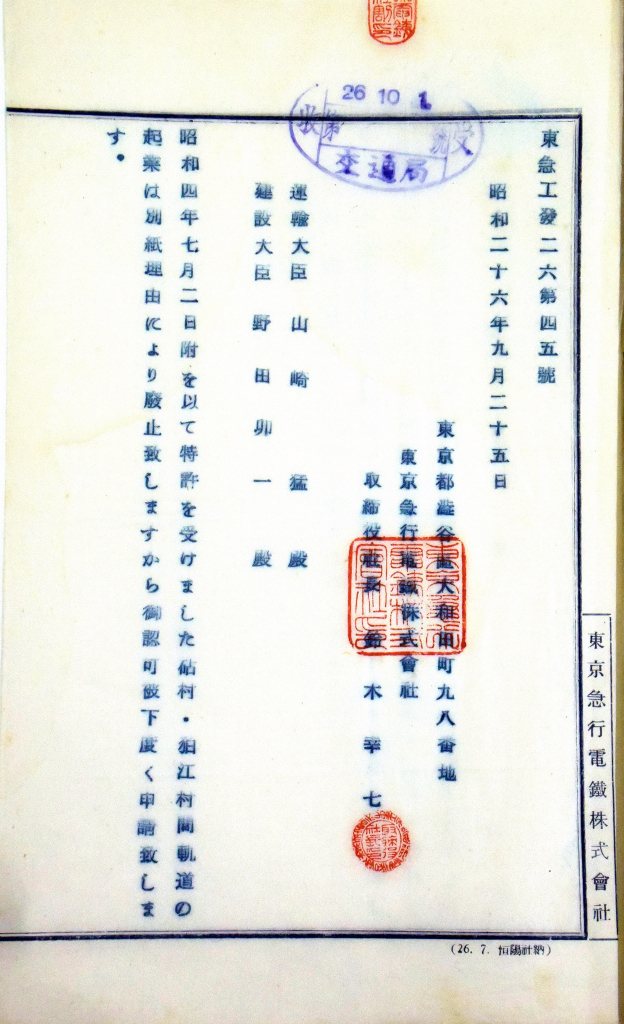 東急工發二六第四五號
昭和二十六年九月二十五日
東京都澁谷區大和田町九八番地
東京急行電鐵株式會社
取締役社長 鈴木幸七
運輸大臣 山崎猛殿
建設大臣 野田卯一殿
昭和四年七月二日附を以て特許を受けました砧村・狛江村間軌道の
起業は別紙理由により廢止致しますから御認可被下度く申請致しま
す。
26 10 1
交通局
東京急行電鐵株式會社
(26. 7. 恒陽社納)